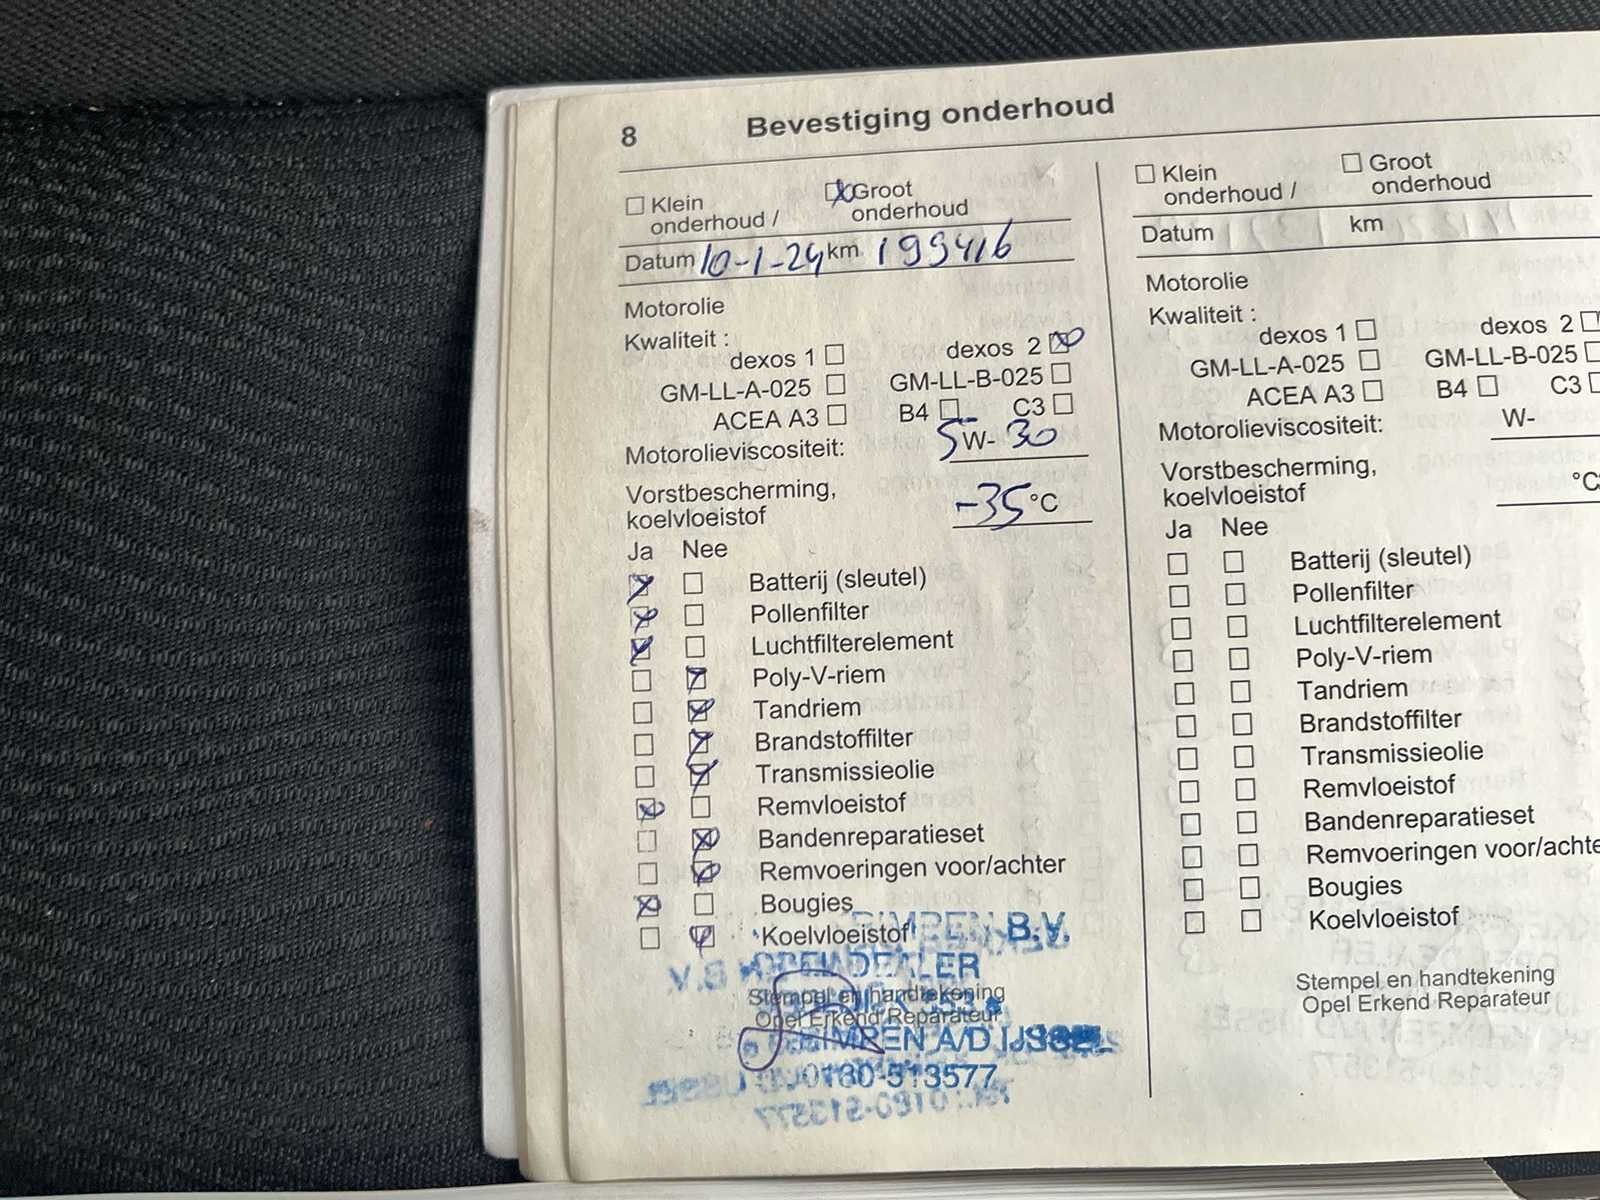 8 Bevestiging onderhoud
Klein onderhoud / Groot onderhoud
Datum 10-1-24 km 199416
Motorolie
Kwaliteit :
dexos 1 dexos 2
GM-LL-A-025 GM-LL-B-025
ACEA A3 B4 C3
Motorolieviscositeit: 5 W- 30
Vorstbescherming,
koelvloeistof -35 °C
Ja Nee
Batterij (sleutel)
Pollenfilter
Luchtfilterelement
Poly-V-riem
Tandriem
Brandstoffilter
Transmissieolie
Remvloeistof
Bandenreparatieset
Remvoeringen voor/achter
Bougies
Koelvloeistof
B.V.
DEALER
Stempel en handtekening
Opel Erkend Reparateur
A/D IJSSEL
0180-513577
Klein onderhoud / Groot onderhoud
Datum km
Motorolie
Kwaliteit :
dexos 1 dexos 2
GM-LL-A-025 GM-LL-B-025
ACEA A3 B4 C3
Motorolieviscositeit: W-
Vorstbescherming,
koelvloeistof °C
Ja Nee
Batterij (sleutel)
Pollenfilter
Luchtfilterelement
Poly-V-riem
Tandriem
Brandstoffilter
Transmissieolie
Remvloeistof
Bandenreparatieset
Remvoeringen voor/achte
Bougies
Koelvloeistof
Stempel en handtekening
Opel Erkend Reparateur